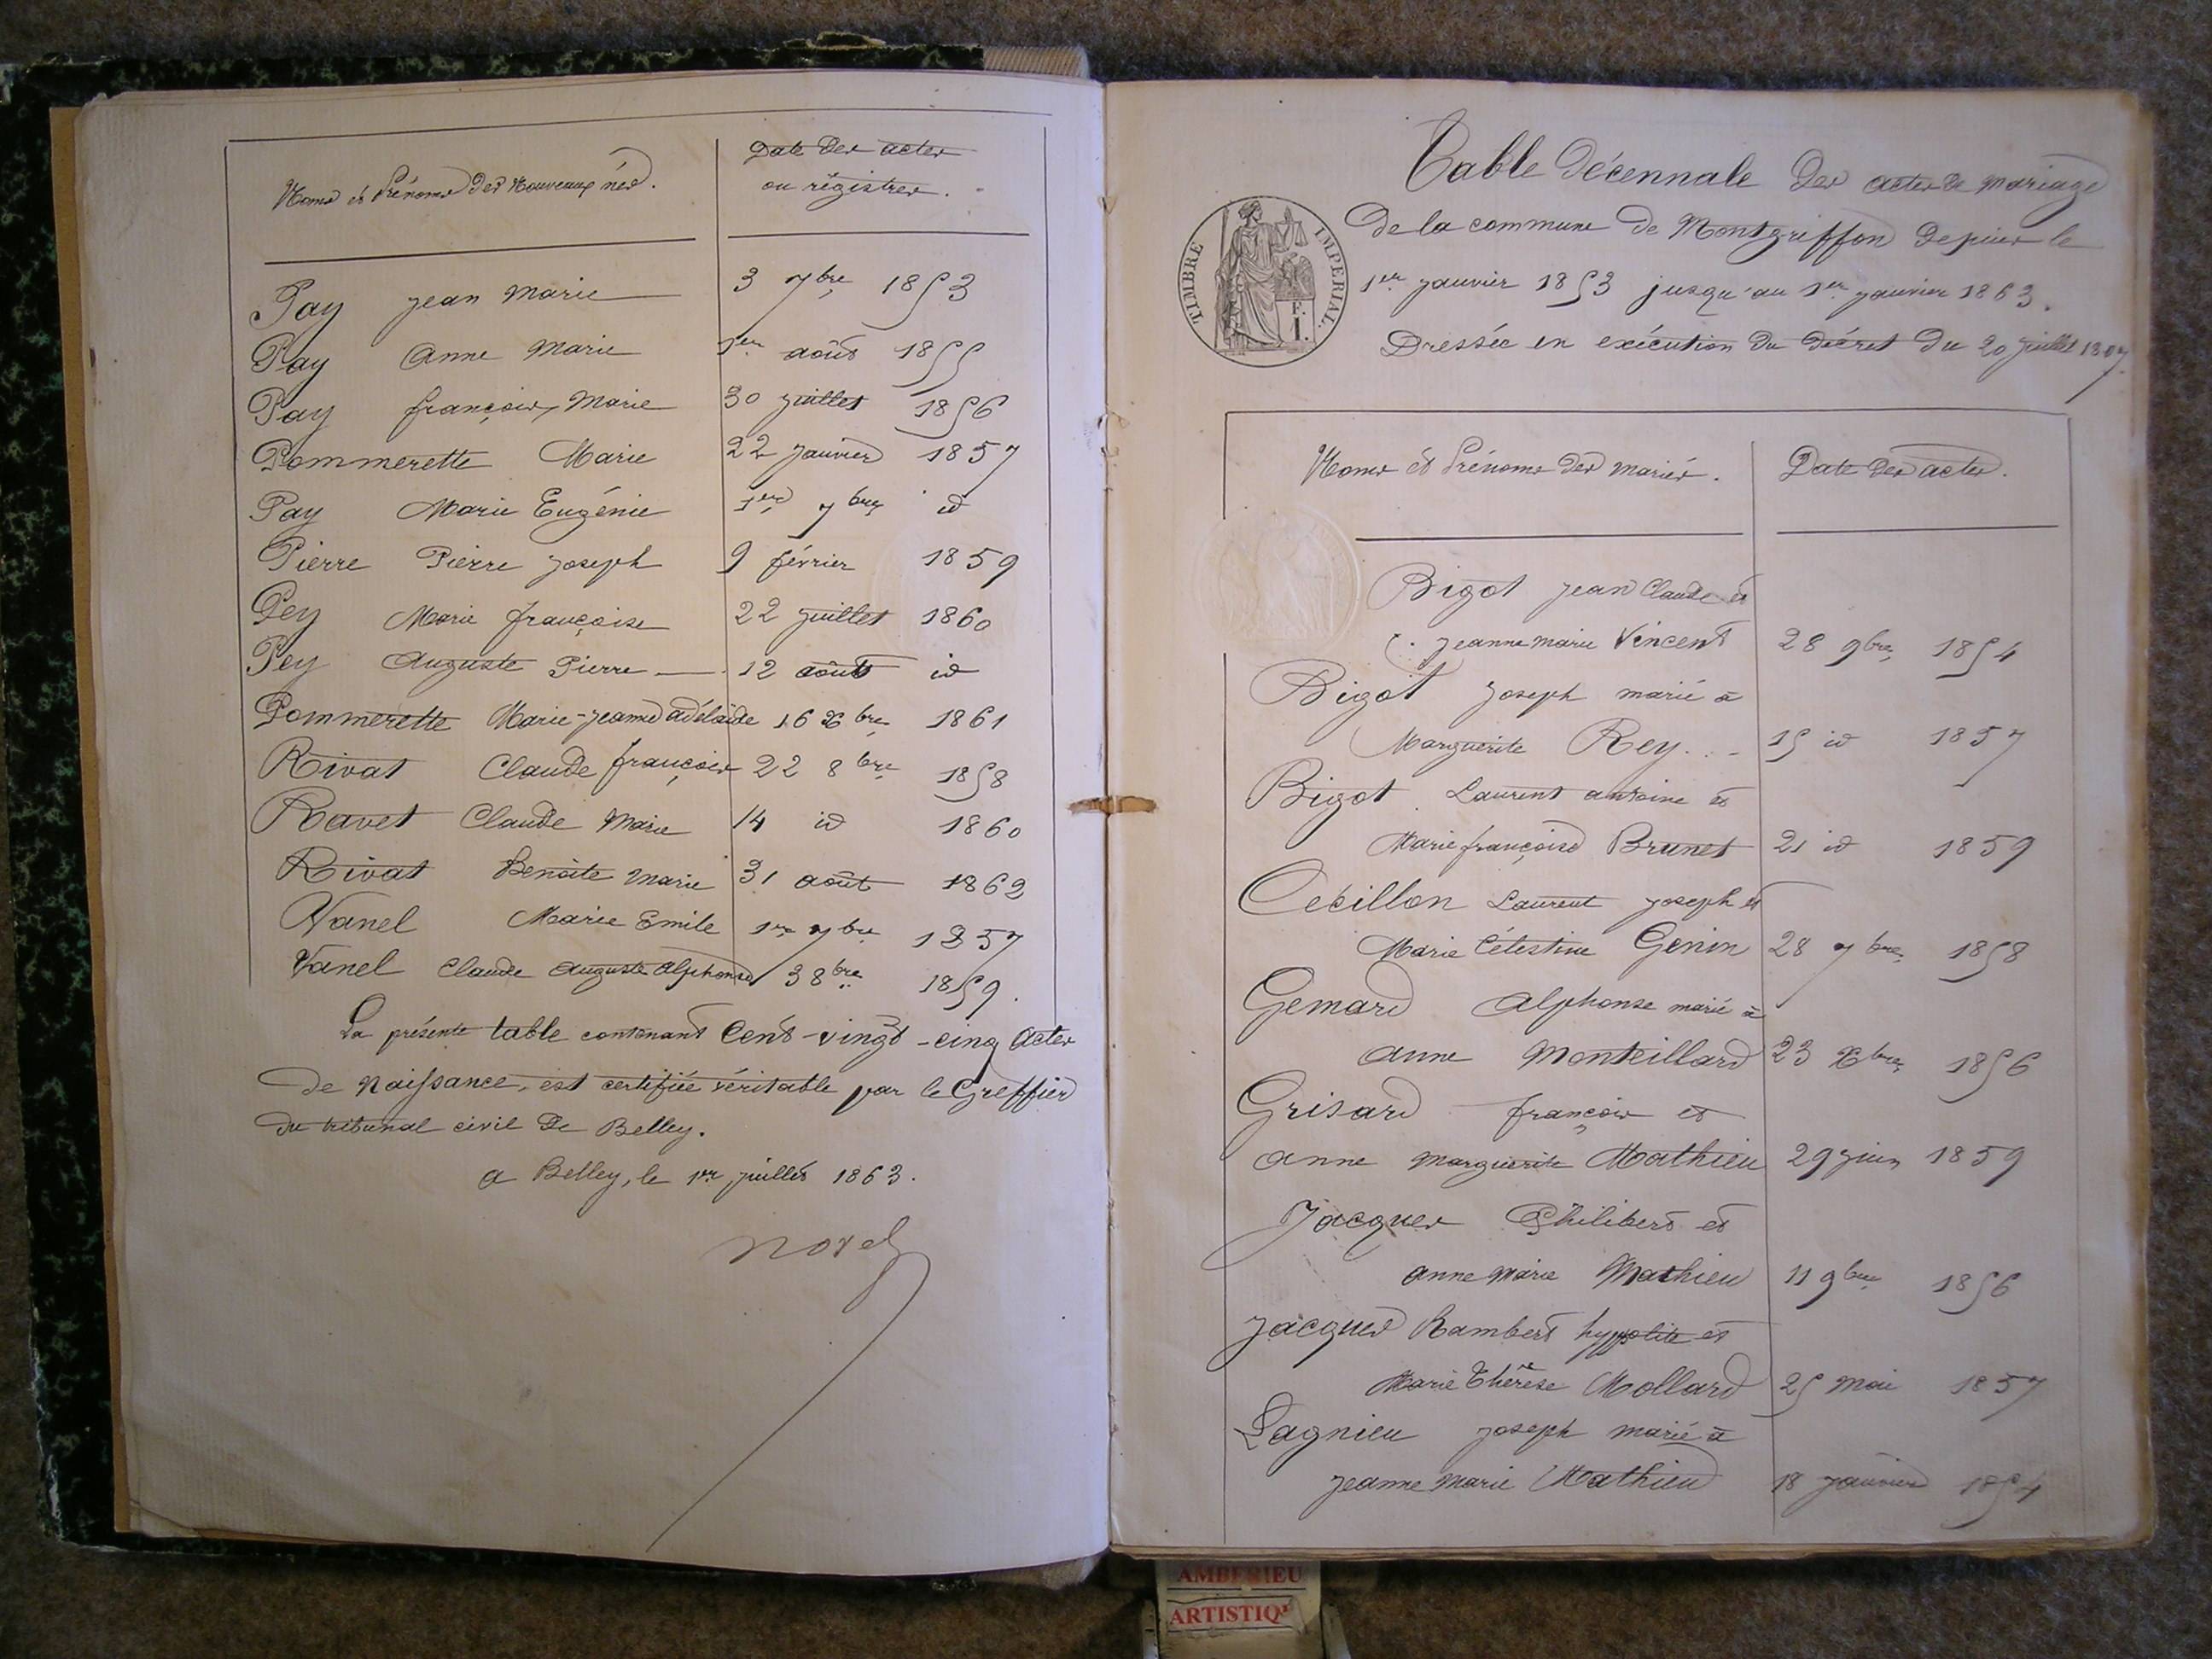 Noms et Prénoms des Nouveaux nés.
Date des actes
ou régistres.
Pay Jean Marie 3 7bre 1853
Pay Anne Marie 1er août 1855
Pay François, Marie 30 juillet 1856
Pommerette Marie 22 janvier 1857
Pay Marie Eugénie 1er 7bre id
Pierre Pierre Joseph 9 février 1859
Pey Marie françoise 22 juillet 1860
Pey Auguste Pierre 12 août id
Pommerette Marie-jeanne adélaïde 16 Xbre 1861
Rivat Claude françois 22 8bre 1858
Ravet Claude Marie 14 id 1860
Rivat Benoite Marie 31 août 1862
Vanel Marie Emile 1er 7bre 1857
Vanel Claude Auguste Alphonse 3 8bre 1859.
La présente table contenant Cent-vingt-cinq Actes
de Naissance, est certifiée véritable par le Greffier
du tribunal civil de Belley.
a Belley, le 1er juillet 1863.
TIMBRE IMPERIAL.
E.
I.
Table décennale des actes de mariage
de la commune de Montgriffon depuis le
1er janvier 1853 jusqu'au 1er janvier 1863.
Dressée en exécution du décret du 20 juillet 1807
Noms et Prénoms des mariés.
Date des actes.
Bigot jean Claude et
jeanne marie Vincent 28 9bre 1854
Bigot Joseph marié à
Marguerite Rey. 15 id 1857
Bigot Laurent antoine et
Marie françoise Brunet 21 id 1859
Cebillon Laurent Joseph et
Marie Célestine Genin 28 7bre 1858
Gemard Alphonse marié à
Anne Monteillard 23 Xbre 1856
Grisard françois et
Anne Marguerite Mathieu 29 juin 1859
Jacques Philibert et
Anne Marie Mathieu 11 9bre 1856
Jacques Rambert hyppolite et
Marie Thérèse Mollard 25 mai 1857
Lagnieu Joseph marié à
Jeanne Marie Mathieu 18 janvier 1854
AMBERIEU
ARTISTIQ